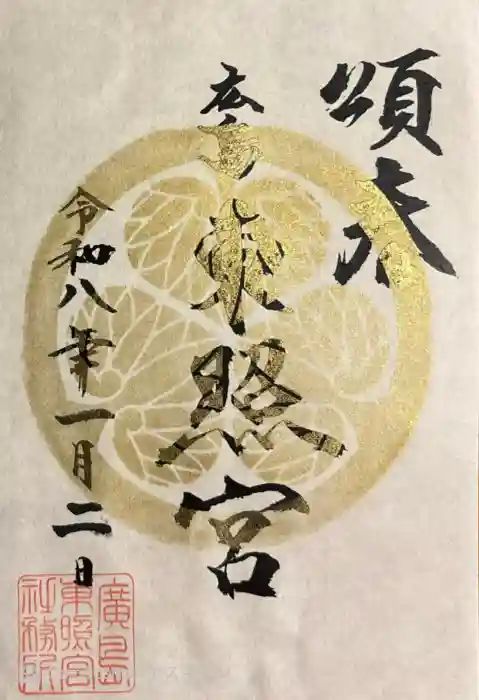 頌春
広島東照宮
令和八年一月二日
廣島
東照宮
社務所